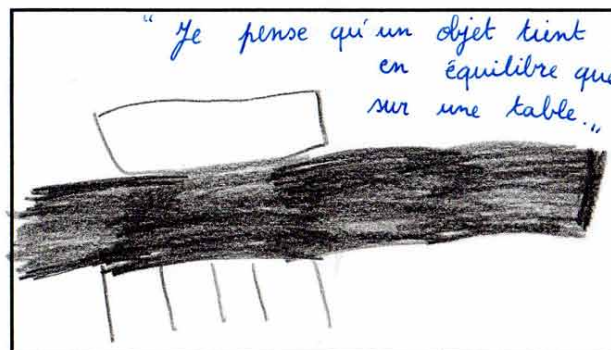 “ Je pense qu'un objet tient
en équilibre que
sur une table. „